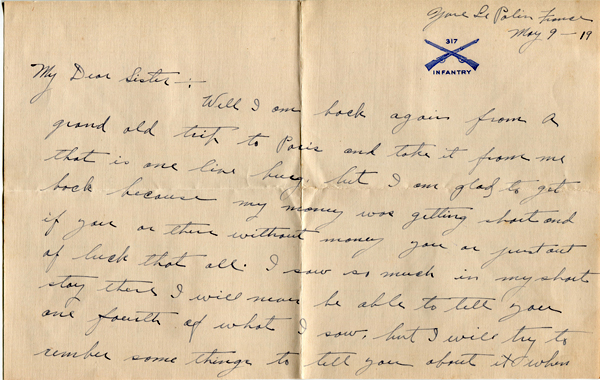 Nore Le Polin France
May 9-19
317
INFANTRY
My Dear Sister-:
Well I am back again from a
grand old trip to Paris and take it from me
that is one live burg. but I am glad to get
back because my money was getting short and
if you or there without money you or just out
of luck that all. I saw so much in my short
stay there I will never be able to tell you
one fourth of what I saw, but I will try to
rember some things to tell you about it when